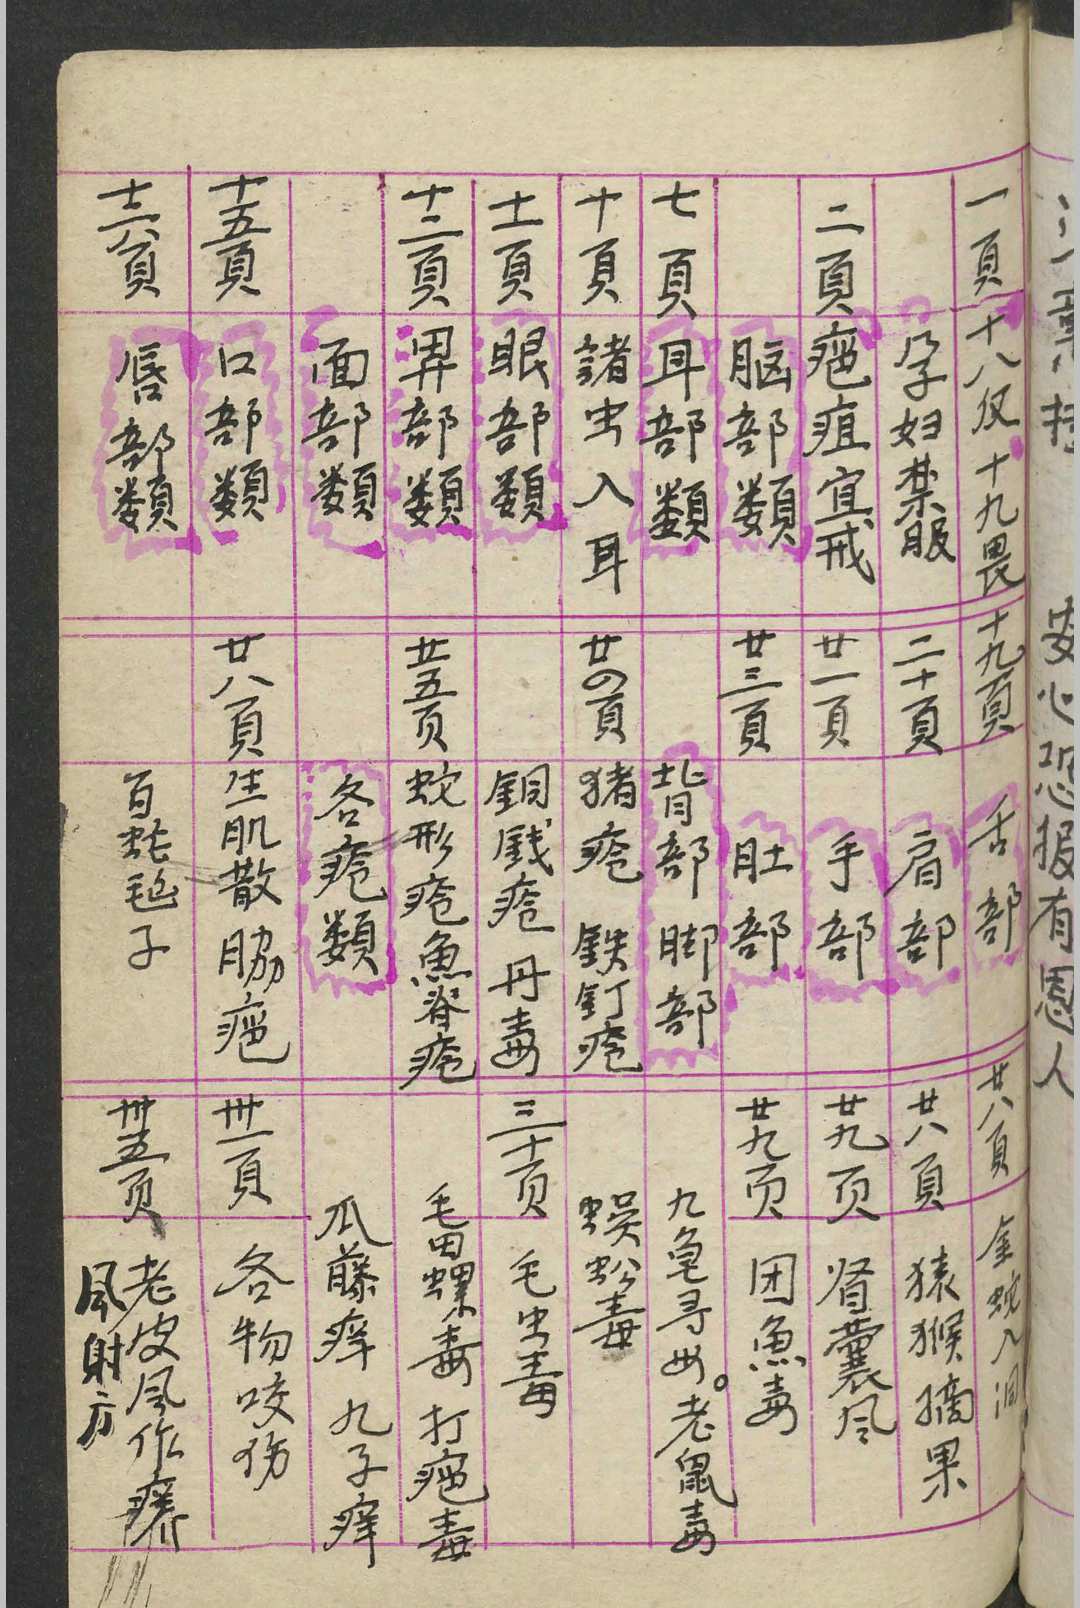 一頁 十八仅 十九畏
孕妇禁服
二頁 疤疽宜戒
脑部類
七頁 耳部類
十頁 諸虫入耳
十一頁 眼部類
十二頁 鼻部類
面部類
十五頁 口部類
十六頁 唇部類
十九頁 舌部
二十頁 肩部
廿一頁 手部
廿三頁 肚部
背部 脚部
廿四頁 猪疮 鉄釘疮
銅銭疮 丹毒
廿五页 蛇形疮 魚脊疮
各疮類
廿八頁 生肌散 胁疤
百蛇毡子
廿八頁 金蛇入洞
廿八頁 猿猴摘果
廿九页 肾囊风
廿九页 团魚毒
九龟寻母。老鼠毒
蜈蚣毒
三十页 毛虫毒
毛田螺毒 打疤毒
瓜藤痒 九子痒
卅一頁 各物咬伤
卅五页 老皮风作痒
风射方
安心恐报有恩人